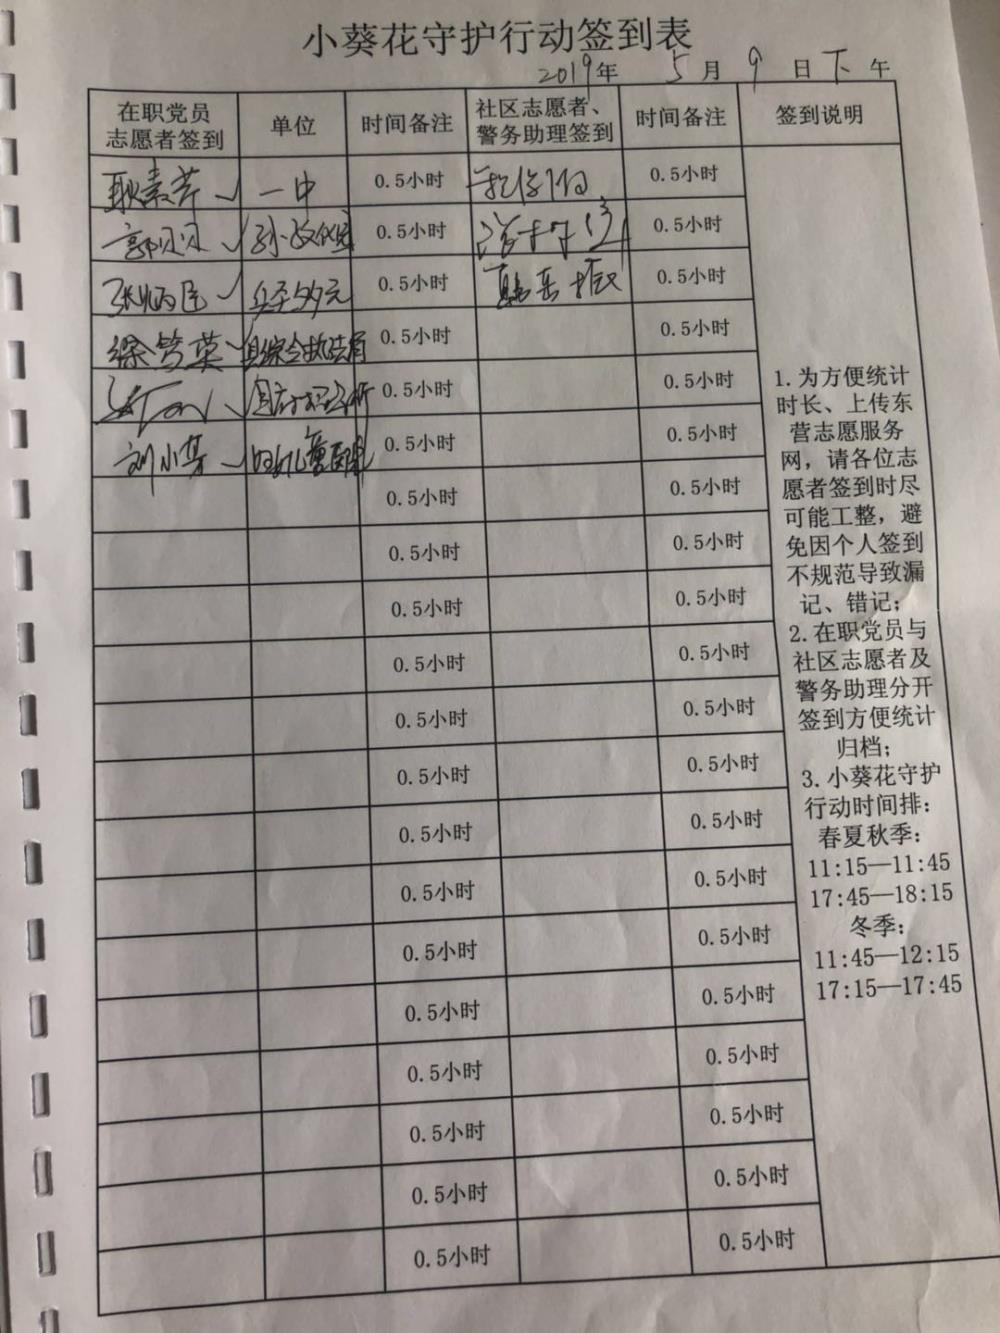 小葵花守护行动签到表
2019年 5月 9日 下午
在职党员
志愿者签到
单位
时间备注
社区志愿者、
警务助理签到
时间备注
签到说明
耿素芹 一中 0.5小时 0.5小时
郭贝贝 0.5小时 0.5小时
张炳臣 0.5小时 0.5小时
徐梦荣 县综合执法局 0.5小时 0.5小时
0.5小时 0.5小时
刘小芳 0.5小时 0.5小时
0.5小时 0.5小时
0.5小时 0.5小时
0.5小时 0.5小时
0.5小时 0.5小时
0.5小时 0.5小时
0.5小时 0.5小时
0.5小时 0.5小时
0.5小时 0.5小时
0.5小时 0.5小时
0.5小时 0.5小时
0.5小时 0.5小时
0.5小时 0.5小时
0.5小时 0.5小时
0.5小时 0.5小时
1.为方便统计
时长、上传东
营志愿服务
网，请各位志
愿者签到时尽
可能工整，避
免因个人签到
不规范导致漏
记、错记；
2.在职党员与
社区志愿者及
警务助理分开
签到方便统计
归档；
3.小葵花守护
行动时间排：
春夏秋季：
11:15—11:45
17:45—18:15
冬季：
11:45—12:15
17:15—17:45